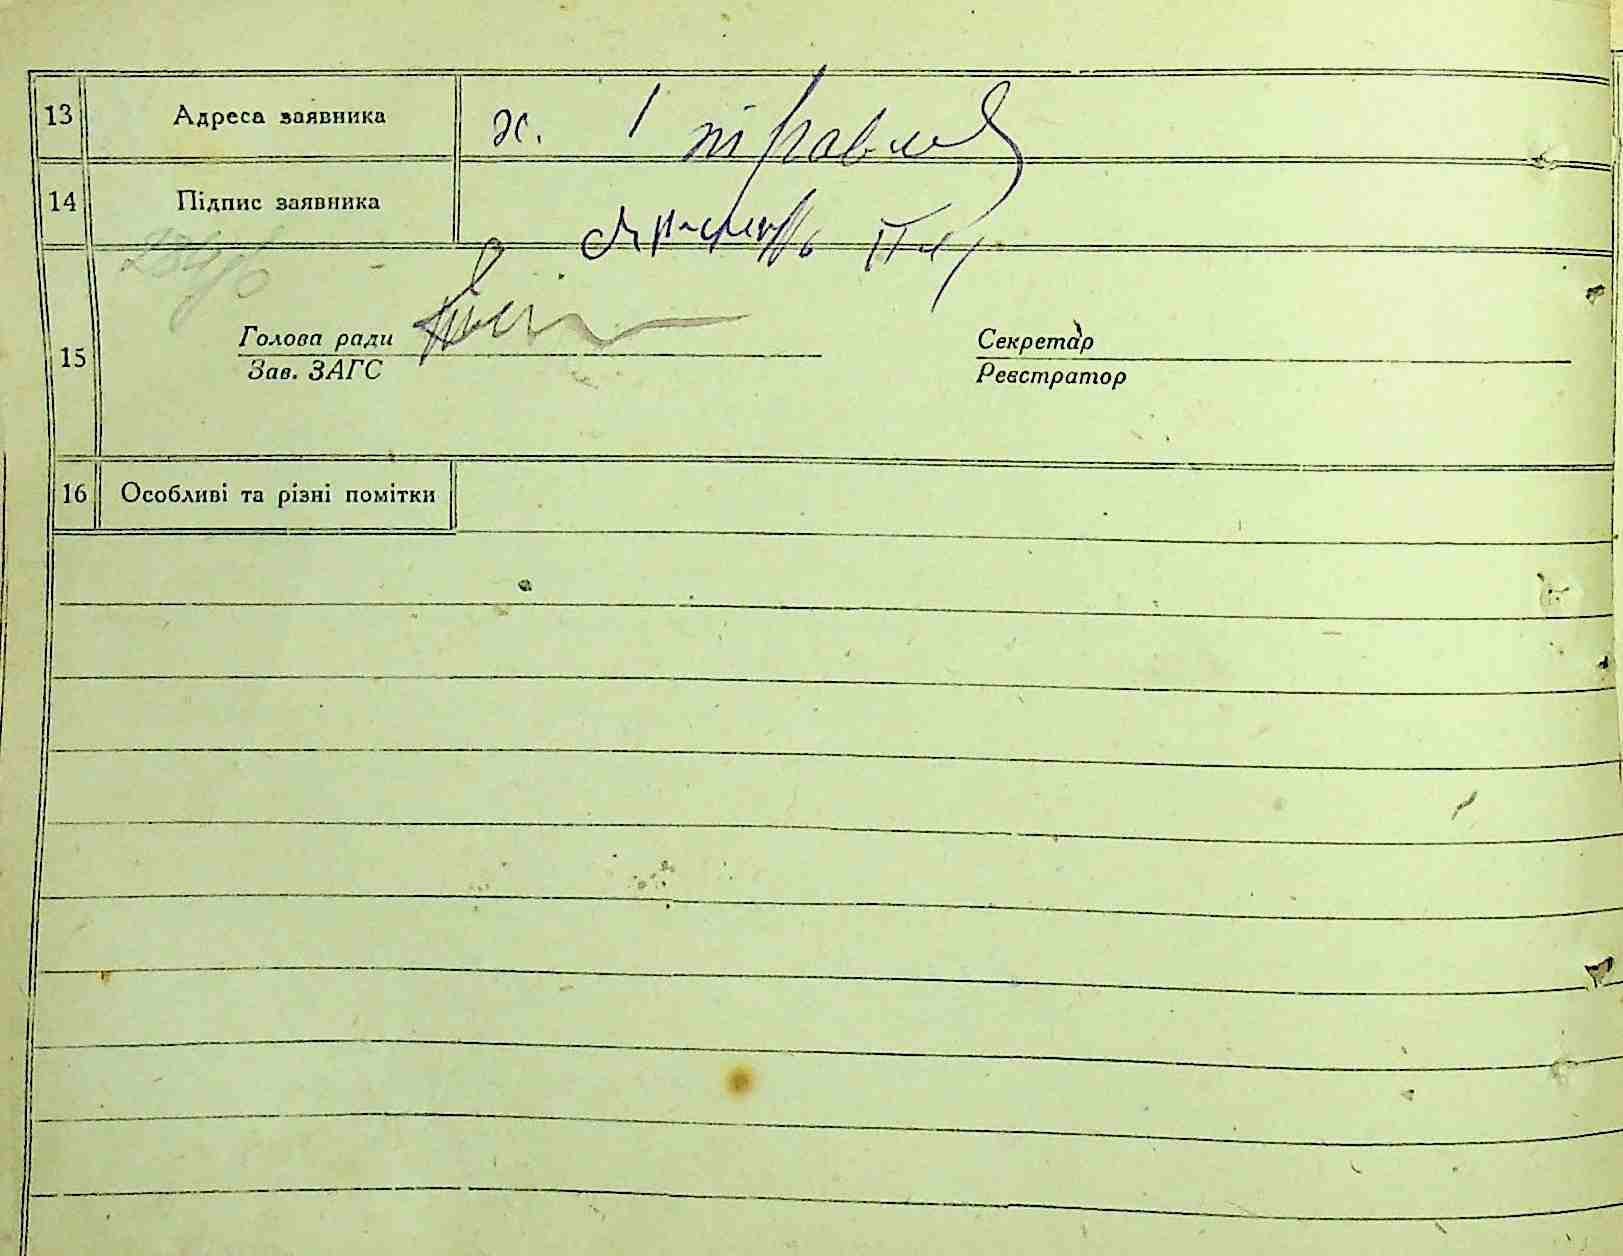 13 Адреса заявника х. 1 травня
14 Підпис заявника
15
Голова ради Секретар
Зав. ЗАГС Реєстратор
16 Особливі та різні помітки